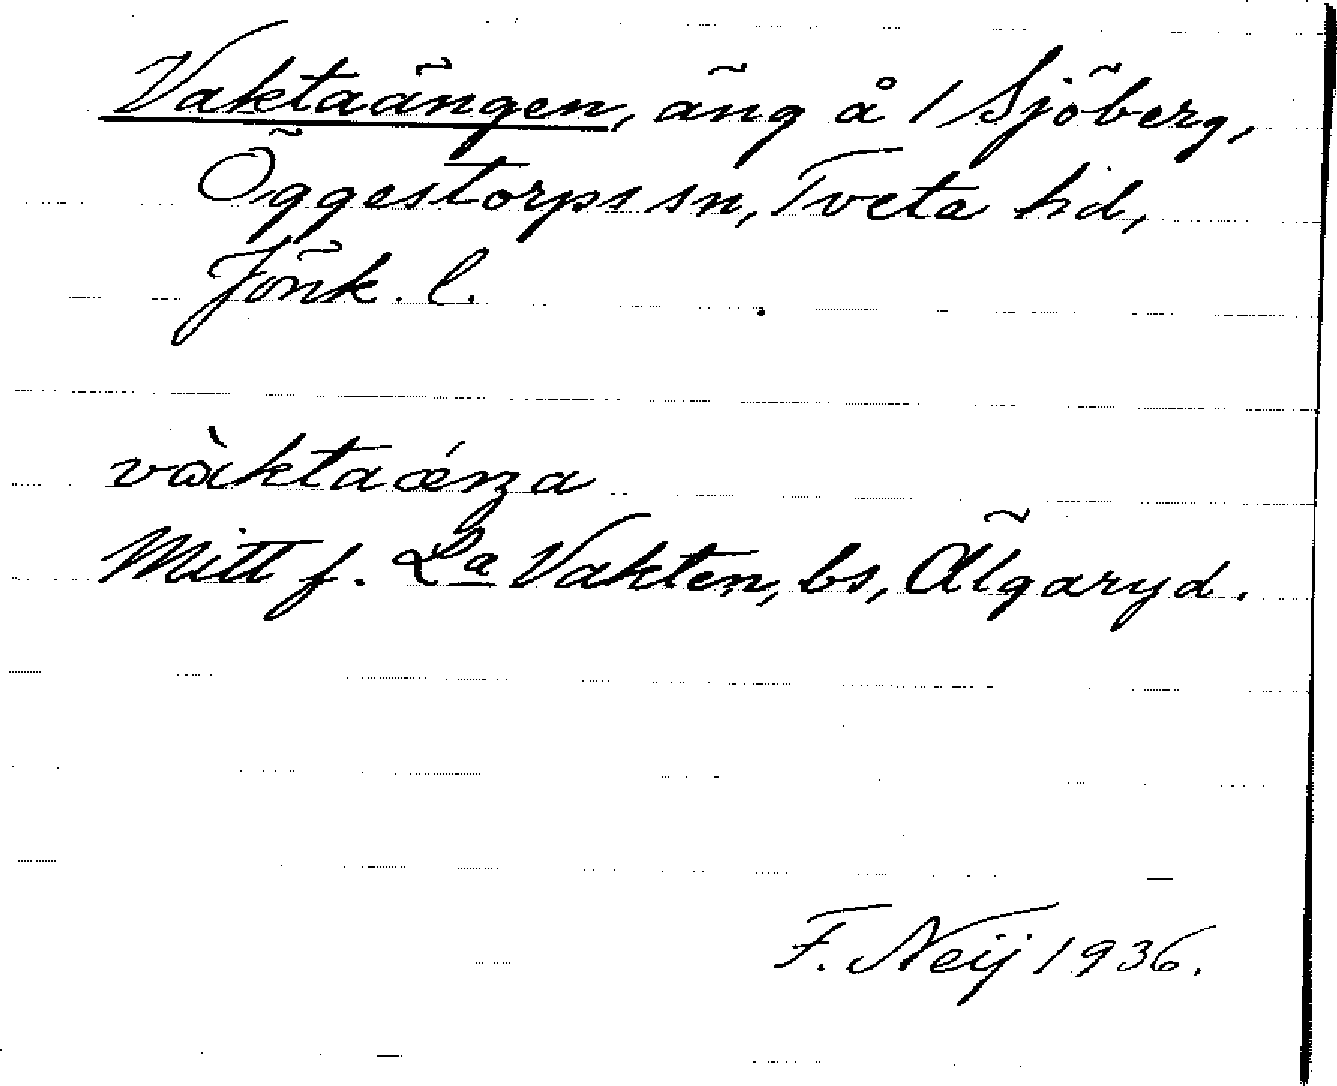 Vaktaängen, äng å 1 Sjöberg,
Öggestorps sn, Tveta hd,
Jönk. l.
Mitt f. La Vakten, bs, Älgaryd.
F. Neij 1936.